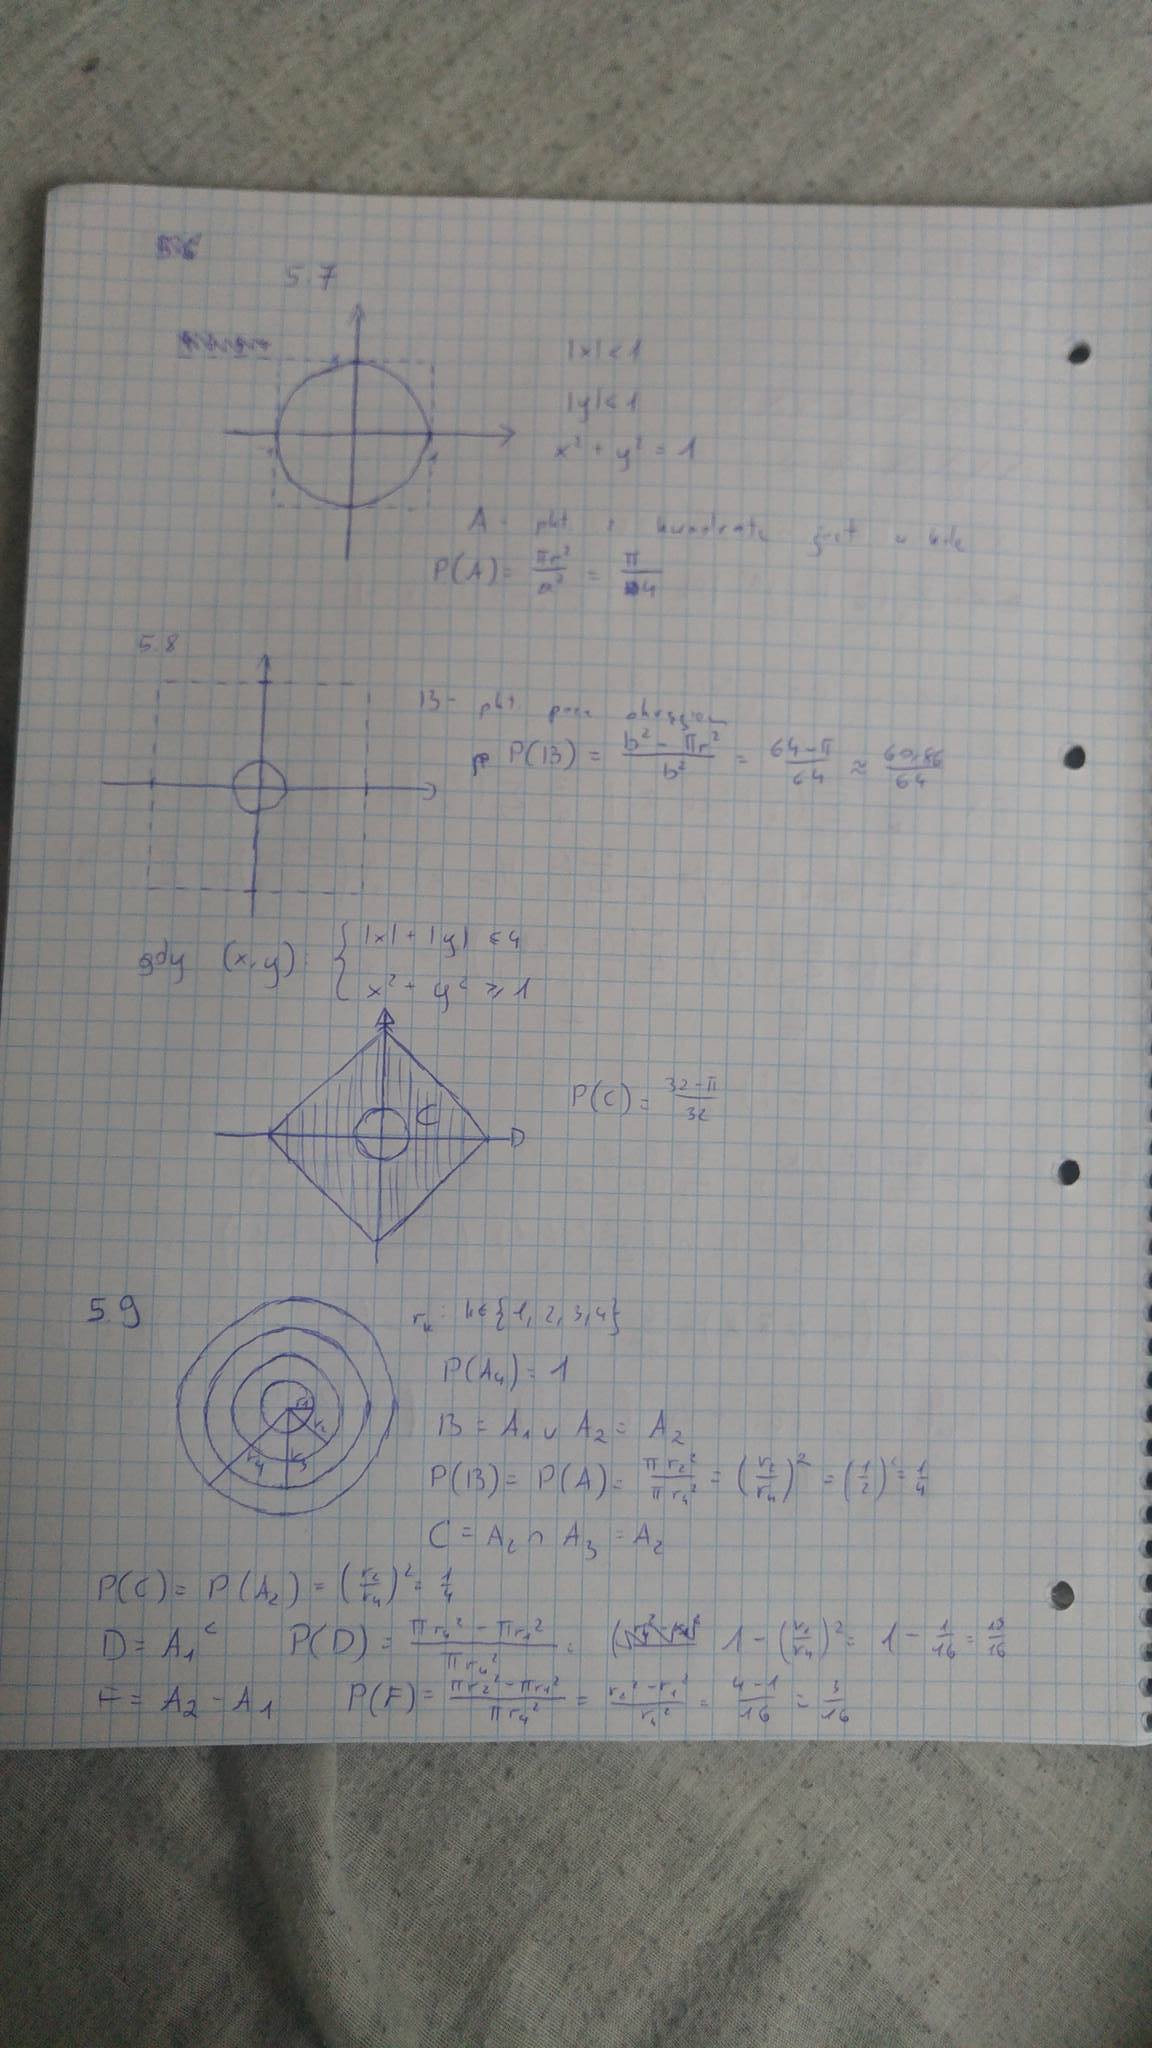 5.7
|x| < 1
|y| < 1
x² + y² = 1
1
-1
1
A - pkt z kwadratu jest w kole
P(A) = πr²/a² = π/4
5.8
B - pkt poza okręgiem
P(B) = (b² - πr²)/b² = (64-π)/64 ≈ 60,86/64
gdy (x,y): { |x| + |y| ≤ 4
x² + y² ≥ 1
C
P(C) = (32-π)/32
5.9
r₁
r₂
r₃
r₄
rₖ : k∈{1,2,3,4}
P(A₄) = 1
B = A₁ ∪ A₂ = A₂
P(B) = P(A) = πr₂²/πr₄² = (r₂/r₄)² = (1/2)² = 1/4
C = A₂ ∩ A₃ = A₂
P(C) = P(A₂) = (r₂/r₄)² = 1/4
D = A₁ᶜ P(D) = (πr₄² - πr₁²)/πr₄² = 1 - (r₁/r₄)² = 1 - 1/16 = 15/16
F = A₂ - A₁ P(F) = (πr₂² - πr₁²)/πr₄² = (r₂² - r₁²)/r₄² = (4-1)/16 = 3/16